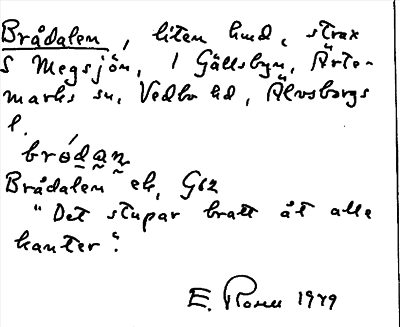 Brådalen, liten hud, strax
S Megsjön, i Gällsbyn, Ärte-
marks sn, Vedbo hd, Älvsborgs
l.
Brådalen ek, G62
"Det stupar bratt åt alla
kanter".
E. Rosell 1979